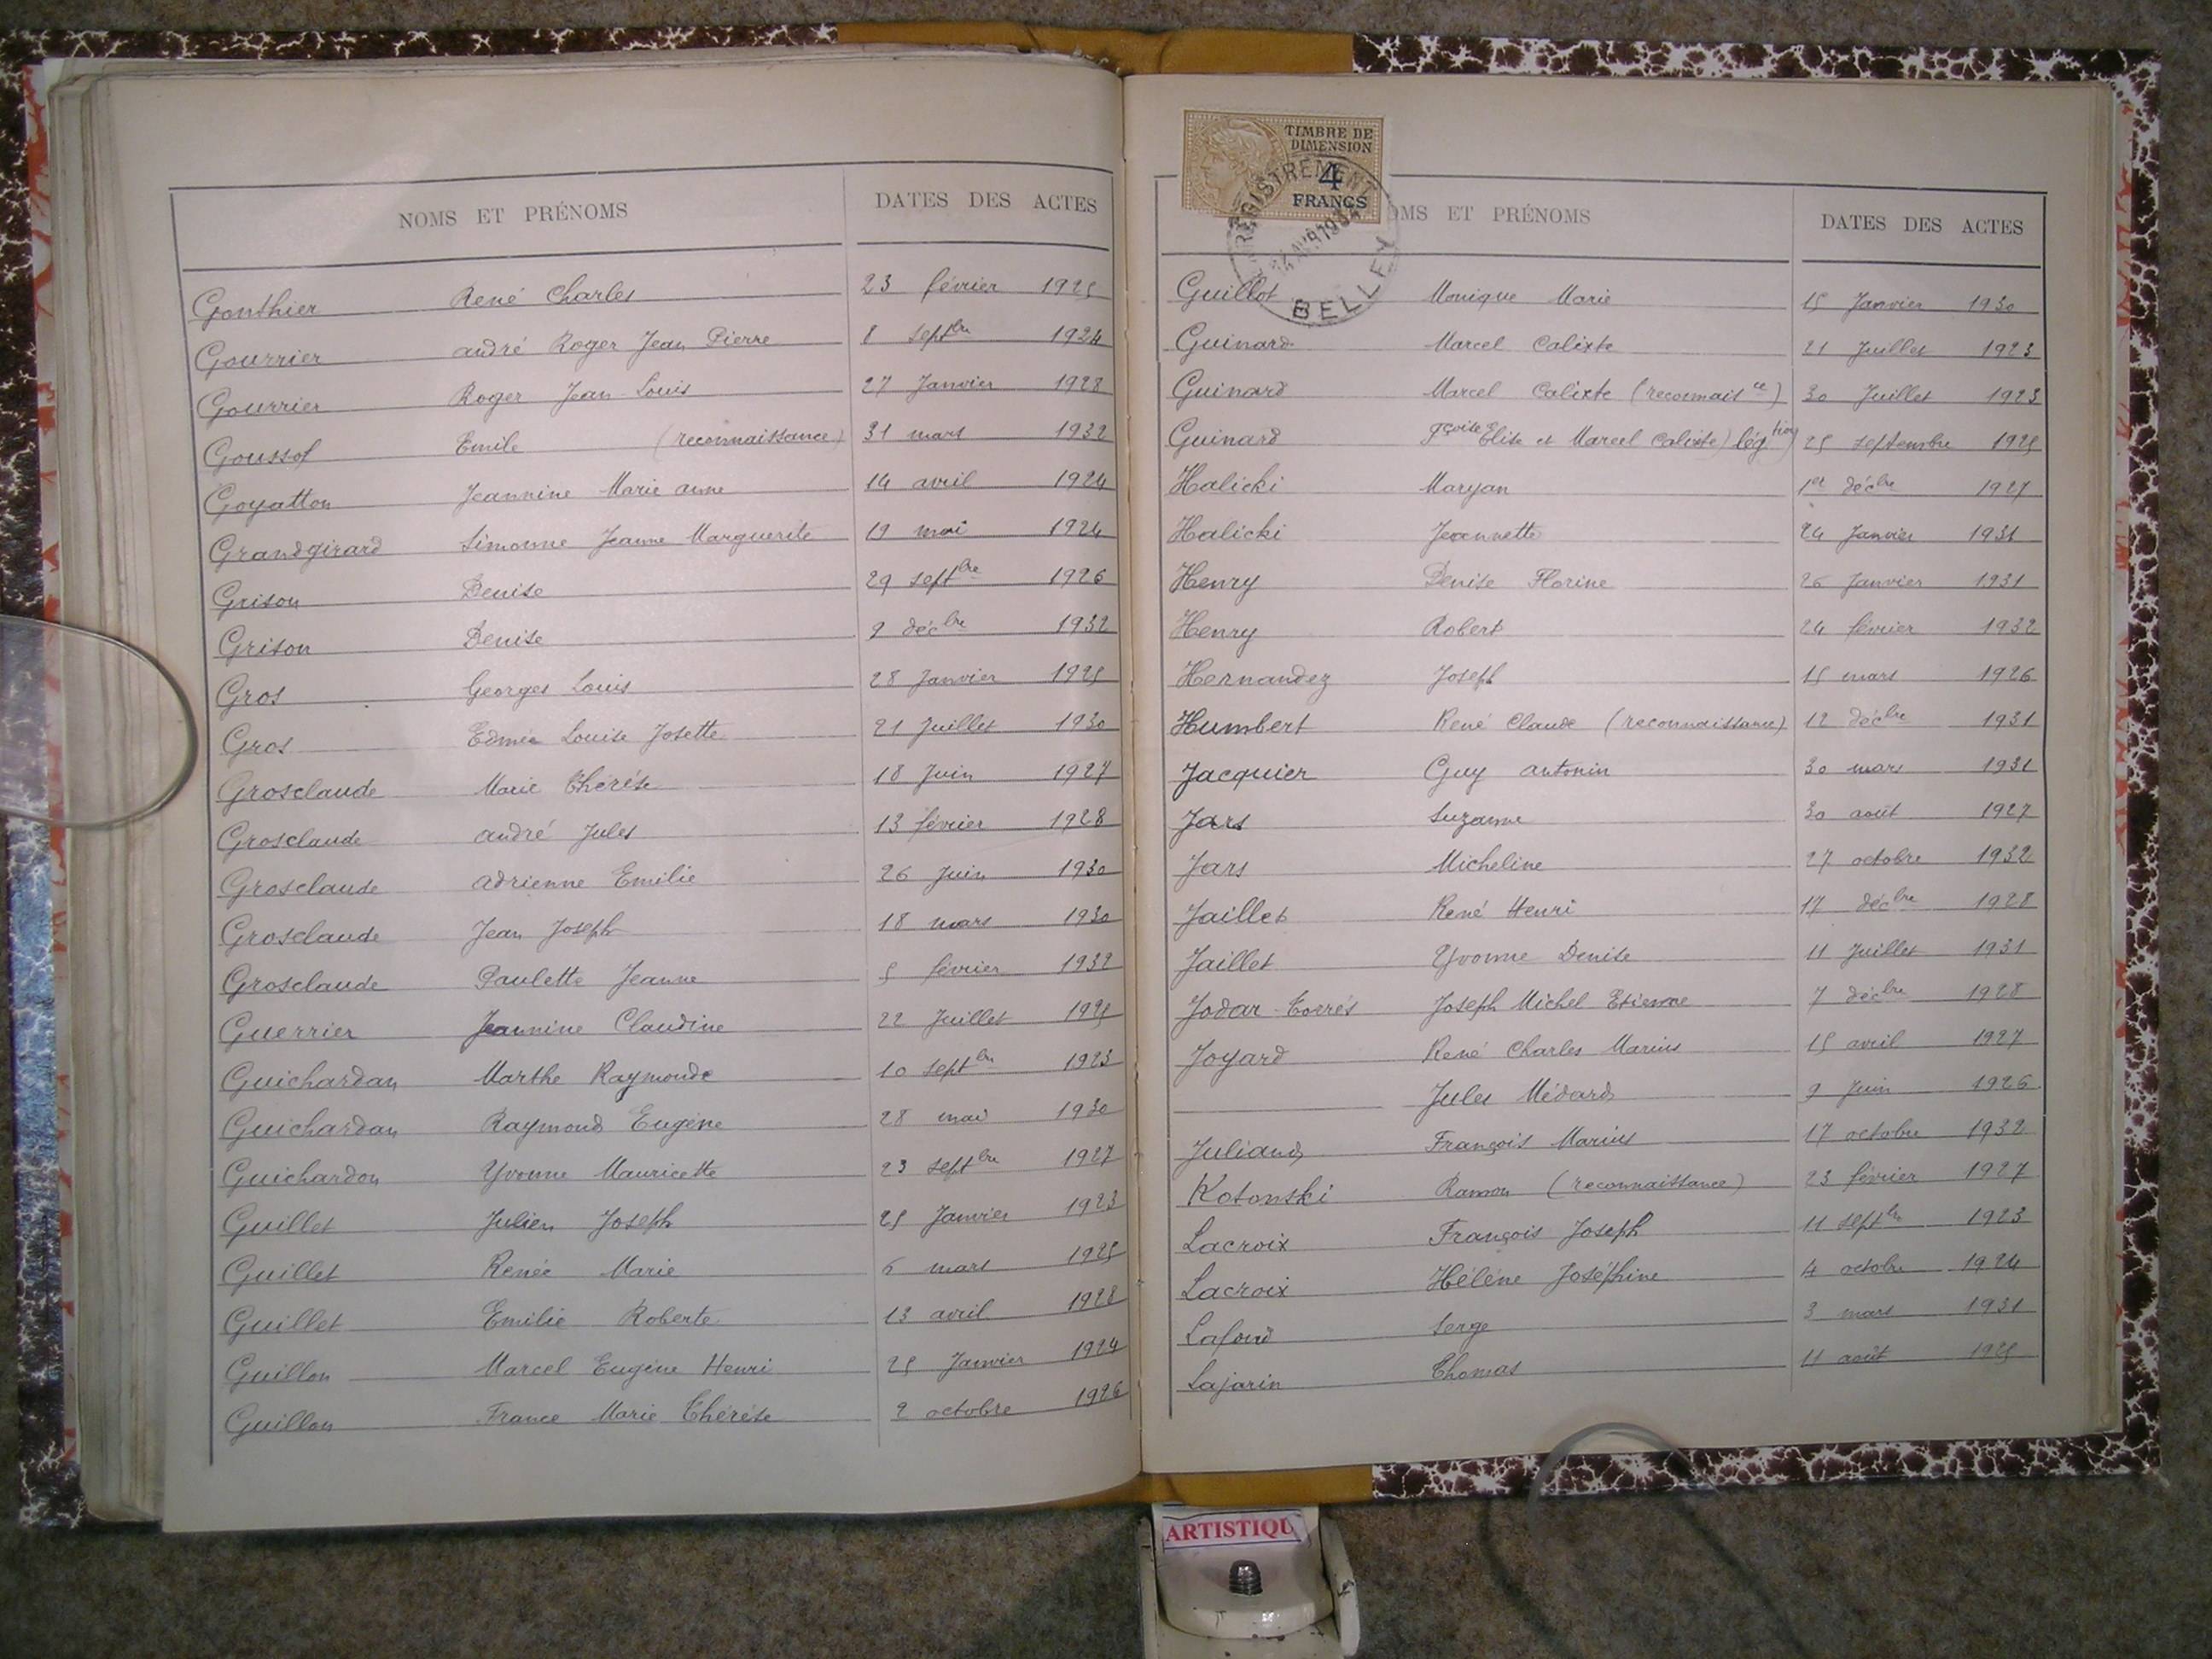 NOMS ET PRÉNOMS DATES DES ACTES
Gonthier René Charles 23 février 1925
Gourrier André Roger Jean Pierre 8 septbre 1924
Gourrier Roger Jean Louis 27 Janvier 1928
Goussof Emile (reconnaissance) 31 mars 1932
Goyatton Jeannine Marie anne 14 avril 1924
Grandgirard Simonne Jeanne Marguerite 19 mai 1924
Grison Denise 29 septbre 1926
Grison Denise 2 décbre 1932
Gros Georges Louis 28 Janvier 1925
Gros Edmée Louise Josette 21 Juillet 1930
Grosclaude Marie Thérèse 18 Juin 1927
Grosclaude andré Jules 13 février 1928
Grosclaude adrienne Emilie 26 Juin 1930
Grosclaude Jean Joseph 18 mars 1930
Grosclaude Paulette Jeanne 5 février 1932
Guerrier Jeannine Claudine 22 Juillet 1925
Guichardan Marthe Raymonde 10 septbre 1923
Guichardan Raymond Eugène 28 mai 1930
Guichardon Yvonne Mauricette 23 septbre 1927
Guillet Julien Joseph 25 Janvier 1923
Guillet Renée Marie 6 mars 1925
Guillet Emilie Roberte 13 avril 1928
Guillon Marcel Eugène Henri 25 Janvier 1924
Guillon France Marie Thérèse 2 octobre 1926
TIMBRE DE
DIMENSION
4
FRANCS
BELLEY
OMS ET PRÉNOMS DATES DES ACTES
Guillot Monique Marie 15 Janvier 1930
Guinard Marcel Calixte 21 Juillet 1923
Guinard Marcel Calixte (reconnaisce) 30 Juillet 1923
Guinard Elise et Marcel Calixte) légtion 25 septembre 1925
Halicki Maryan 1er décbre 1927
Halicki Jeannette 24 Janvier 1931
Henry Denise Florine 26 Janvier 1931
Henry Robert 24 février 1932
Hernandez Joseph 15 mars 1926
Humbert René Claude (reconnaissance) 12 décbre 1931
Jacquier Guy antonin 30 mars 1931
Jars Suzanne 30 août 1927
Jars Micheline 27 octobre 1932
Jaillet René Henri 17 décbre 1928
Jaillet Yvonne Denise 11 Juillet 1931
Jodar-Torrés Joseph Michel Etienne 7 décbre 1928
Joyard René Charles Marius 15 avril 1927
Jules Médard 9 Juin 1926
Juliand François Marius 17 octobre 1932
Kotonski Ramon (reconnaissance) 23 février 1927
Lacroix François Joseph 11 septbre 1923
Lacroix Hélène Joséphine 4 octobre 1924
Lafond Serge 3 mars 1931
Lajarin Thomas 11 août 1925
ARTISTIQU